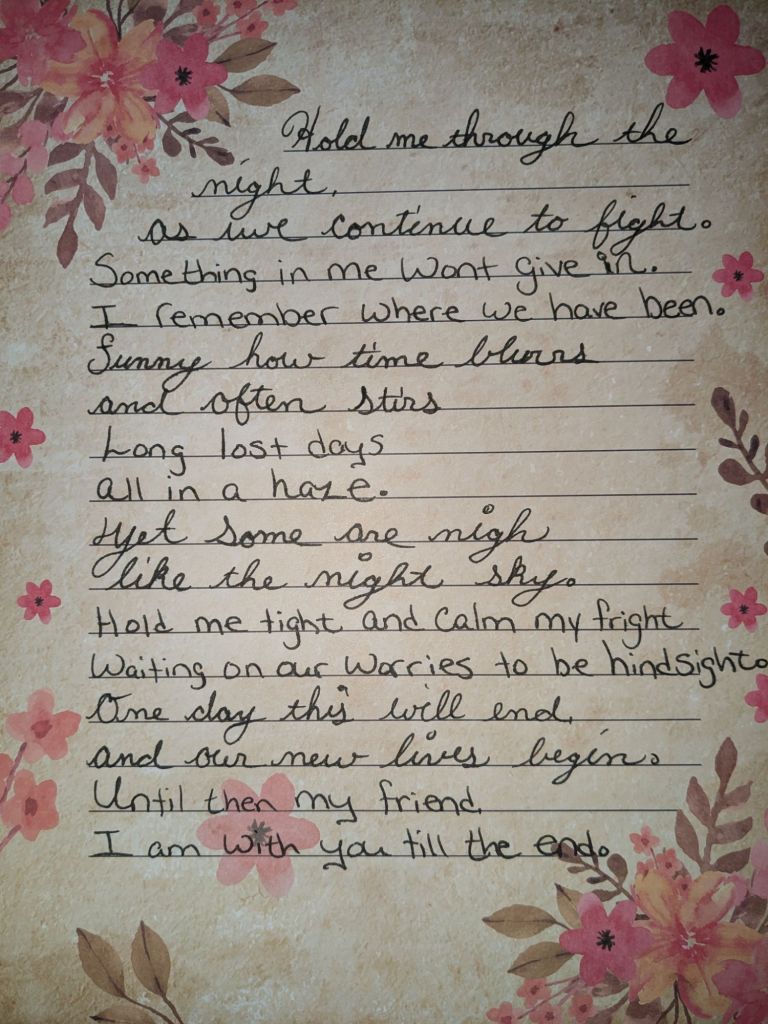 Hold me through the
night,
as we continue to fight.
Something in me wont give in.
I remember where we have been.
Funny how time blurrs
and often stirs
Long lost days
all in a haze.
Yet some are nigh
like the night sky.
Hold me tight and calm my fright
Waiting on our worries to be hindsight.
One day this will end,
and our new lives begin.
Until then my friend,
I am with you till the end.